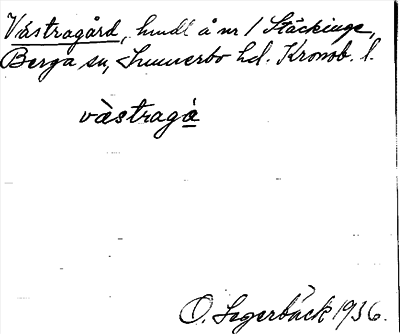 Västragård, hmdl å nr 1 Stäckinge,
Berga sn, Sunnerbo hd. Kronob. l.
vàstragá̲
O. Segerbäck 1936.